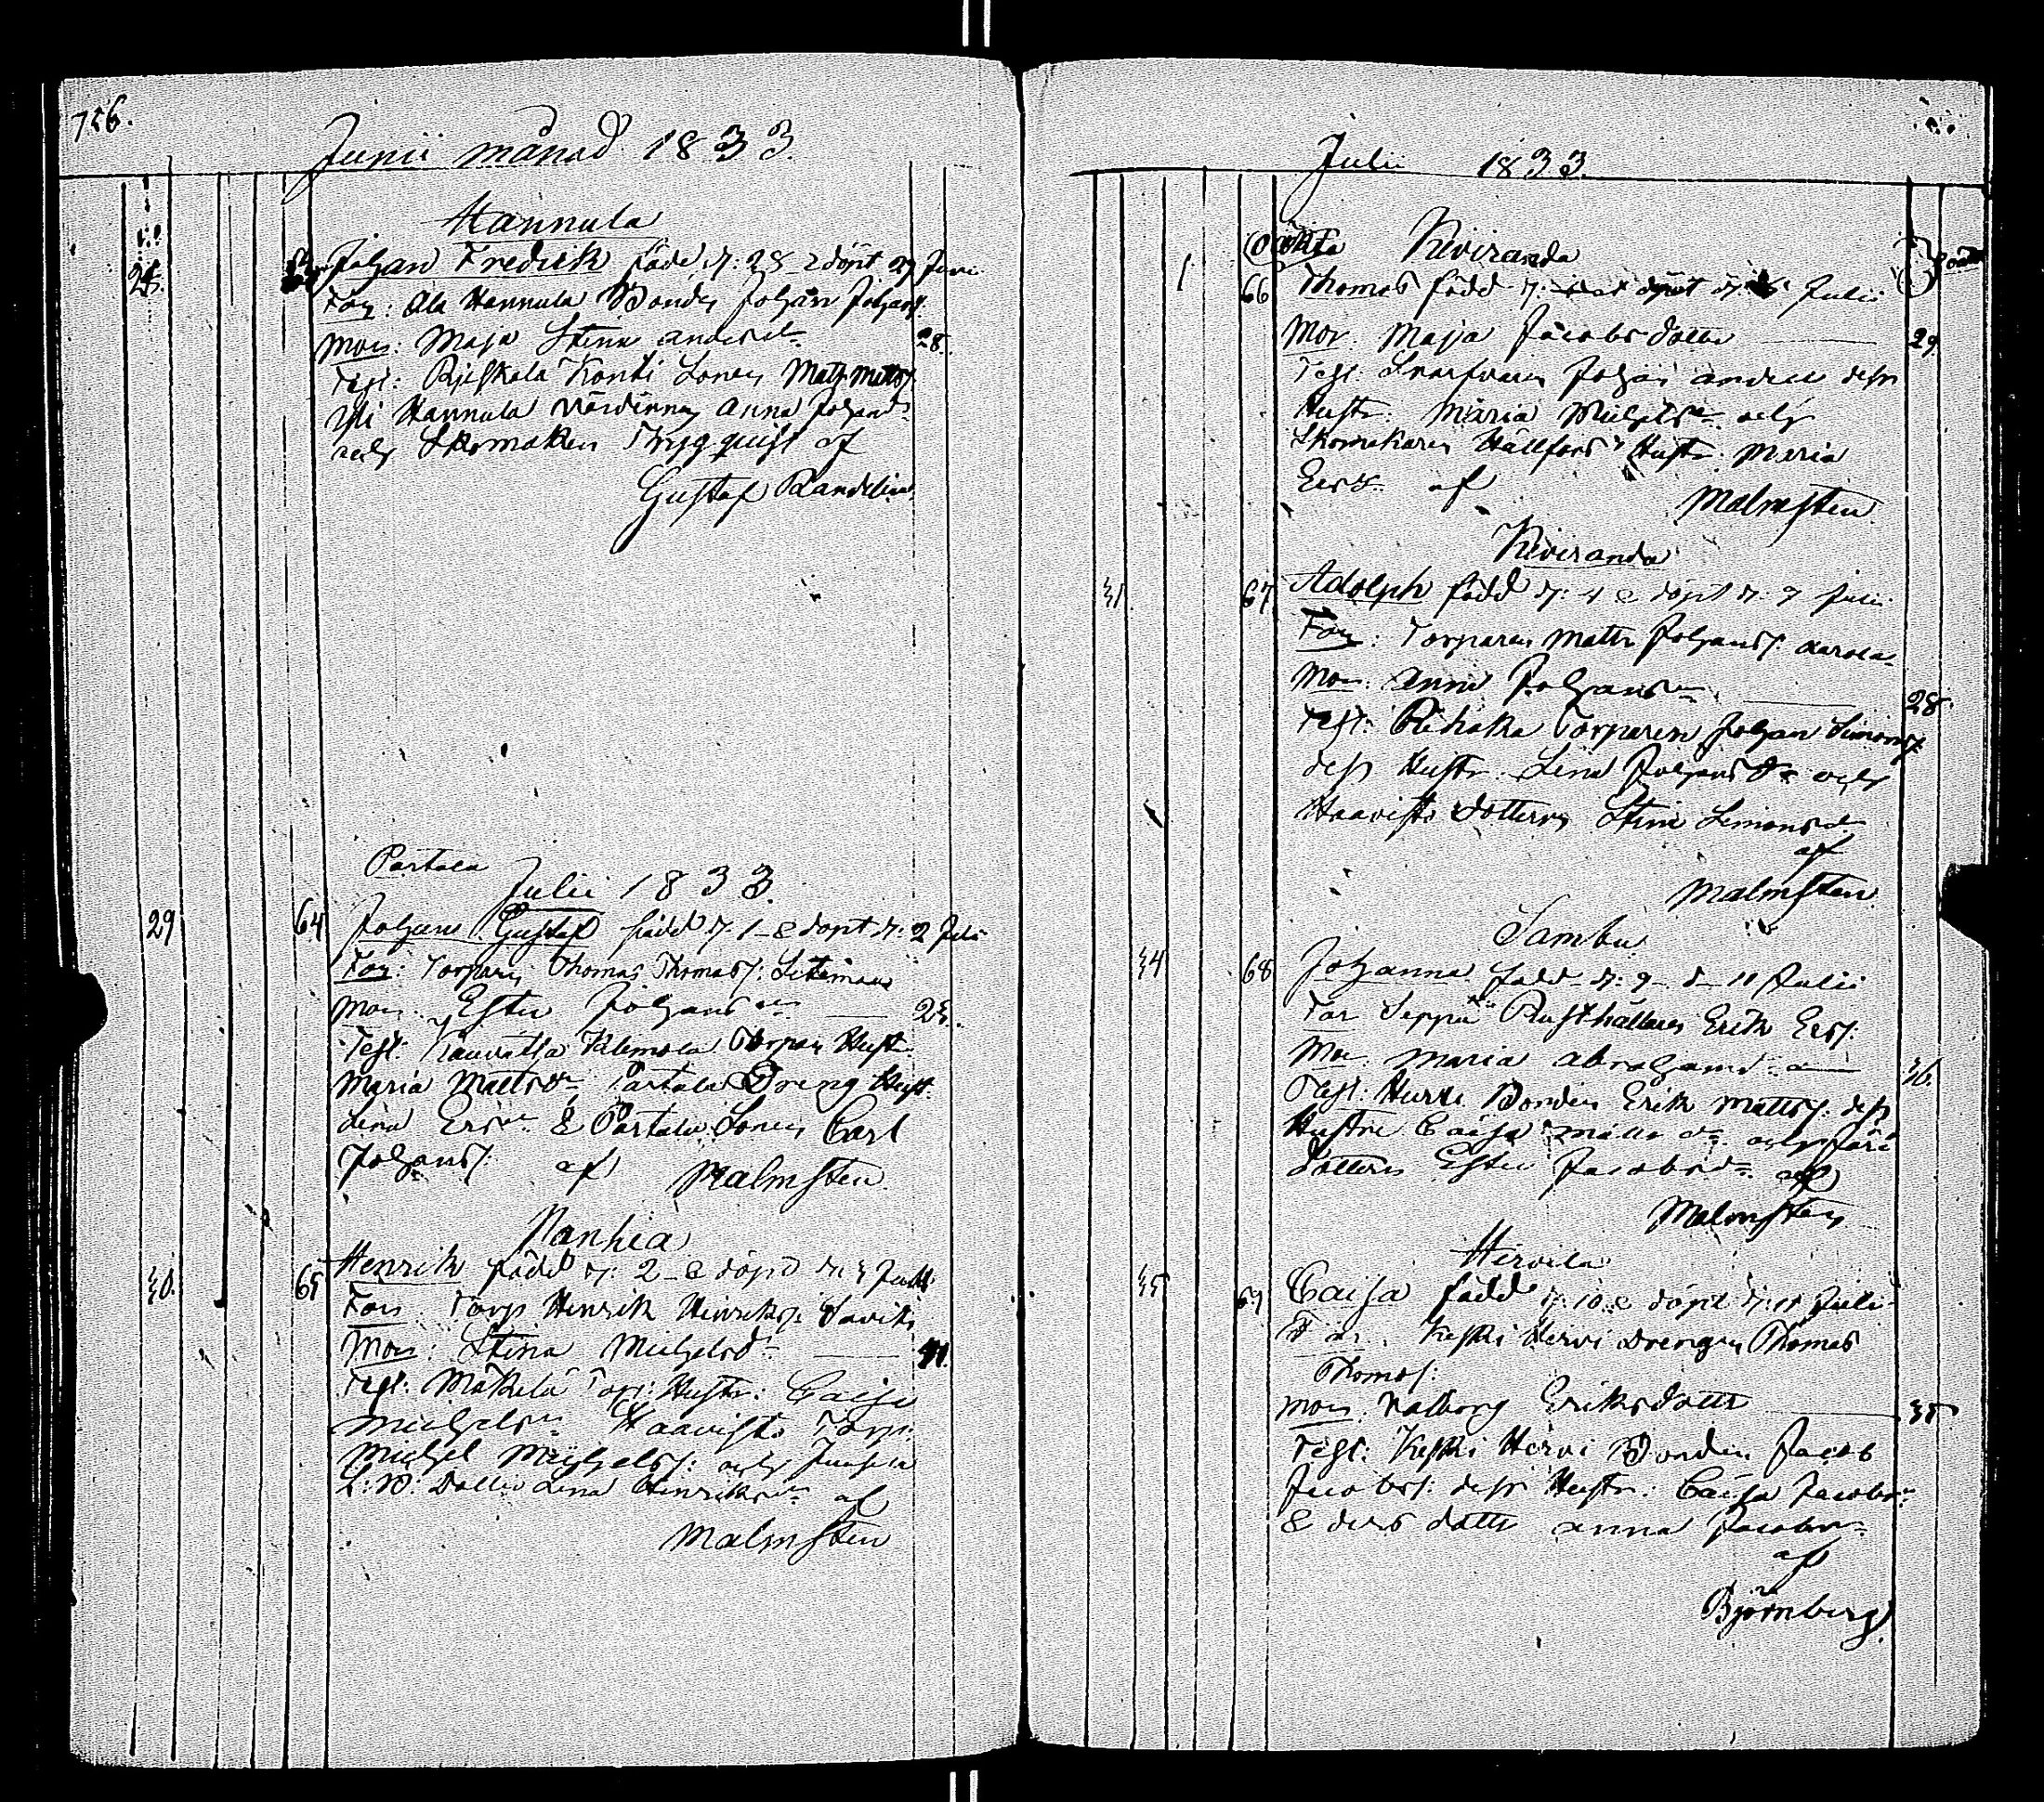 756.
Junii månad 1833.
Hannula
28. Johan Fredrik född d: 28 döpt 29 Juni
Far: Ala Hannula Bonden Johan Johans:
Mor: Maja Stina Andersd:r 28.
Test: Konti Sonen Matts Matts:
Yli Hannula Värdinnan Anna Johansd:r
och Skomakaren Tryggquist af
Gustaf Randelin
Partala
Julii 1833.
29 64 Johan Gustaf född d: 1 & döpt d: 2 Juli
Far: Torparen Thomas Thomass:
Mor: Ester Johansd:r 25.
Test: Klemola Torpar Hust:
Maria Mattsd:r Partala Dreng Hust:
Lena Ersd:r & Partala Sonen Carl
Johans: af Malmsten
Nanhia
30. 65 Henrik född d: 2 & döpt d: 3 Julii
Far: Torp: Henrik Henriks: Saviko
Mor: Stina Michelsd:r 41.
Test: Mäkelä Torp: Hustr: Caisa
Michelsd:r Haavisto Torp:
Michel Michels: och Junsola
Dotter Lena Henriksd:r af
Malmsten
Julii 1833.
Oäkta Kiviranda
1. 66 Thomas född d: döpt d: Julii
Mor. Maja Jacobs dotter 29.
Test: Svarfvaren Johan dess
Hustr: Maria Michelsd:r och
Skomakaren Hällfors Hustr: Maria
Ersd:r af Malmsten
Kiviranda
31. 67 Adolph född d: 4 & döpt d: 7 Julii
Far: Torparen Matts Johans:
Mor: Anna Johansd:r 28.
Test: Torparen Johan Simons:
dess Hustr: Lena Johansd:r och
Haavisto Dottern Stina Simonsd:r
af
Malmsten
Sambu
34 68 Johanna född d: 9 d 11 Julii
Far Seppä Rusthållaren Erik Ers:
Mor: Maria Abrahamsd:r 36.
Test: Bonden Erik Matts: dess
Hustru Caisa Mattsd:r och
dottern Ester Jacobsd:r af
Malmsten
Hervila
35 69 Caisa född d: 10 & döpt d: 11 Juli
Far: Keski Hervi Drengen Thomas
Thomas:
Mor: Valborg Eriksdotter 35
Test: Keski Hervi Bonden Jacob
Jacobs: dess Hustr: Caisa Jacobsd:r
& dess dotter Anna Jacobsd:r
af
Björnberg